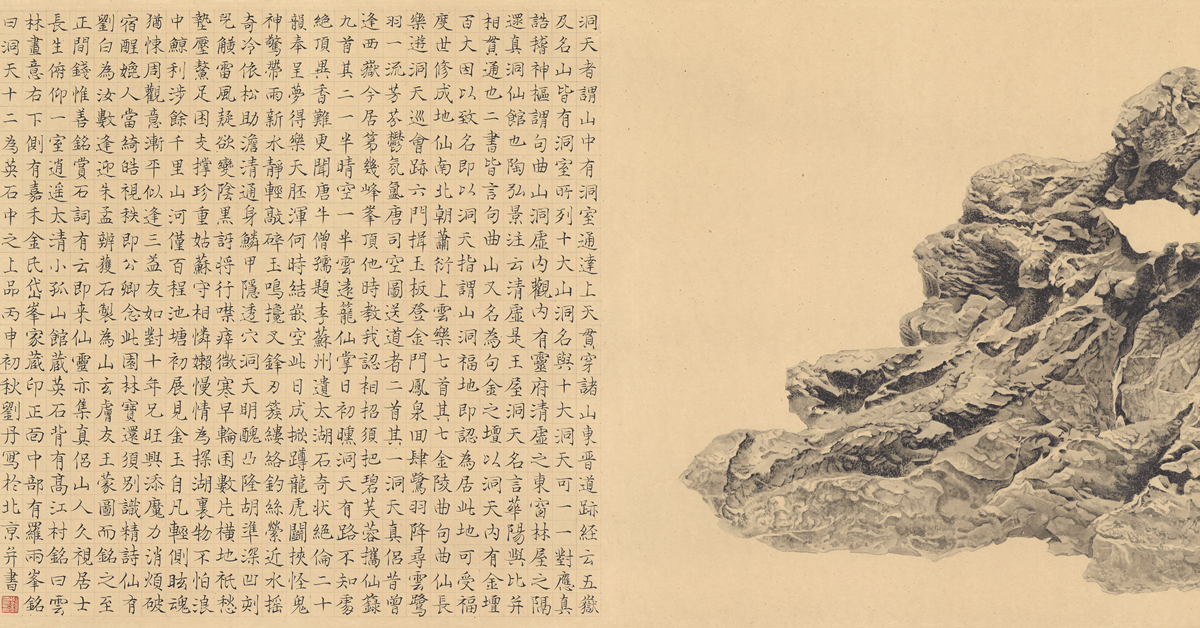 洞天者謂山中有洞室通達上天貫穿諸山東晉道跡經云五嶽
及名山皆有洞室所列十大山洞名與十大洞天可一一對應真
誥稽神樞謂句曲山洞虛內觀內有靈府清虛之東窗林屋之隔
還真洞仙館也陶弘景注云清虛是王屋洞天名言華陽與比并
相貫通也二書皆言句曲山又名為句金之壇以洞天內有金壇
百丈因以致名即以洞天指謂山洞福地即認為居此地可受福
度世修成地仙南北朝蕭衍上雲樂七首其七金陵曲句曲仙長
樂遊洞天巡會跡六門揖玉板登金門鳳泉回肆鷺羽降尋雲鷺
羽一流芳芬鬱氛氳唐司空圖送道者二首其一洞天真侶昔曾
逢西嶽今居第幾峰峯頂他時教我認相招須把碧芙蓉攜仙籙
九首其二一半晴空一半雲遠籠仙掌日初曛洞天有路不知處
絕頂異香難更聞唐牛僧孺題李蘇州遺太湖石奇狀絕倫二十
韻奉呈夢得樂天胚渾何時結嵌空此日成掀蹲龍虎鬬挾怪鬼
神驚帶雨新水靜輕敲碎玉鳴攙叉鋒刃簇縷絡釣絲縈近水搖
奇冷依松助澹清通身鱗甲隱透穴洞天明醜凸隆胡準深凹刻
兕觥雷風疑欲變陰黑訝將行噤痒微寒早輪囷數片橫地祇愁
墊壓鰲足困支撐珍重姑蘇守相憐嬾慢情為探湖裏物不怕浪
中鯨利涉餘千里山河僅百程池塘初展見金玉自凡輕側眩魂
猶悚周觀意漸平似逢三益友如對十年兄旺興添魔力消煩破
宿酲媲人當綺皓視秩即公卿念此園林寶還須別識精詩仙有
劉白為汝數逢迎朱孟辨獲石製為山玄膚友王蒙圖而銘之至
正間錢惟善銘賞石詞有云即来仙靈亦集真侶山人久視居士
長生俯仰一室逍遥太清小孤山館蔵英石背有高江村銘曰雲
林畫意右下側有嘉禾金氏岱峯家蔵印正面中部有羅雨峯銘
曰洞天十二為英石中之上品丙申初秋劉丹寫於北京并書